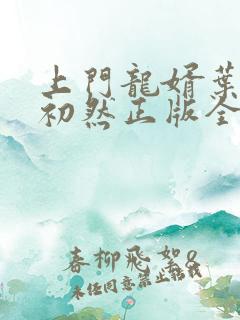 上門龍婿葉
初然正版全
春柳飛絮8
未经同意禁止转载